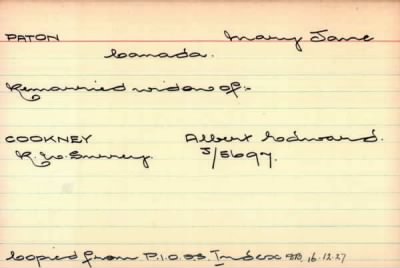 PATON Mary Jane
Canada.
Remarried widow of:-
COOKNEY Albert Edward.
R. W. Surrey. S/5697.
Copied from P.1.O.33. Index 16.12.27